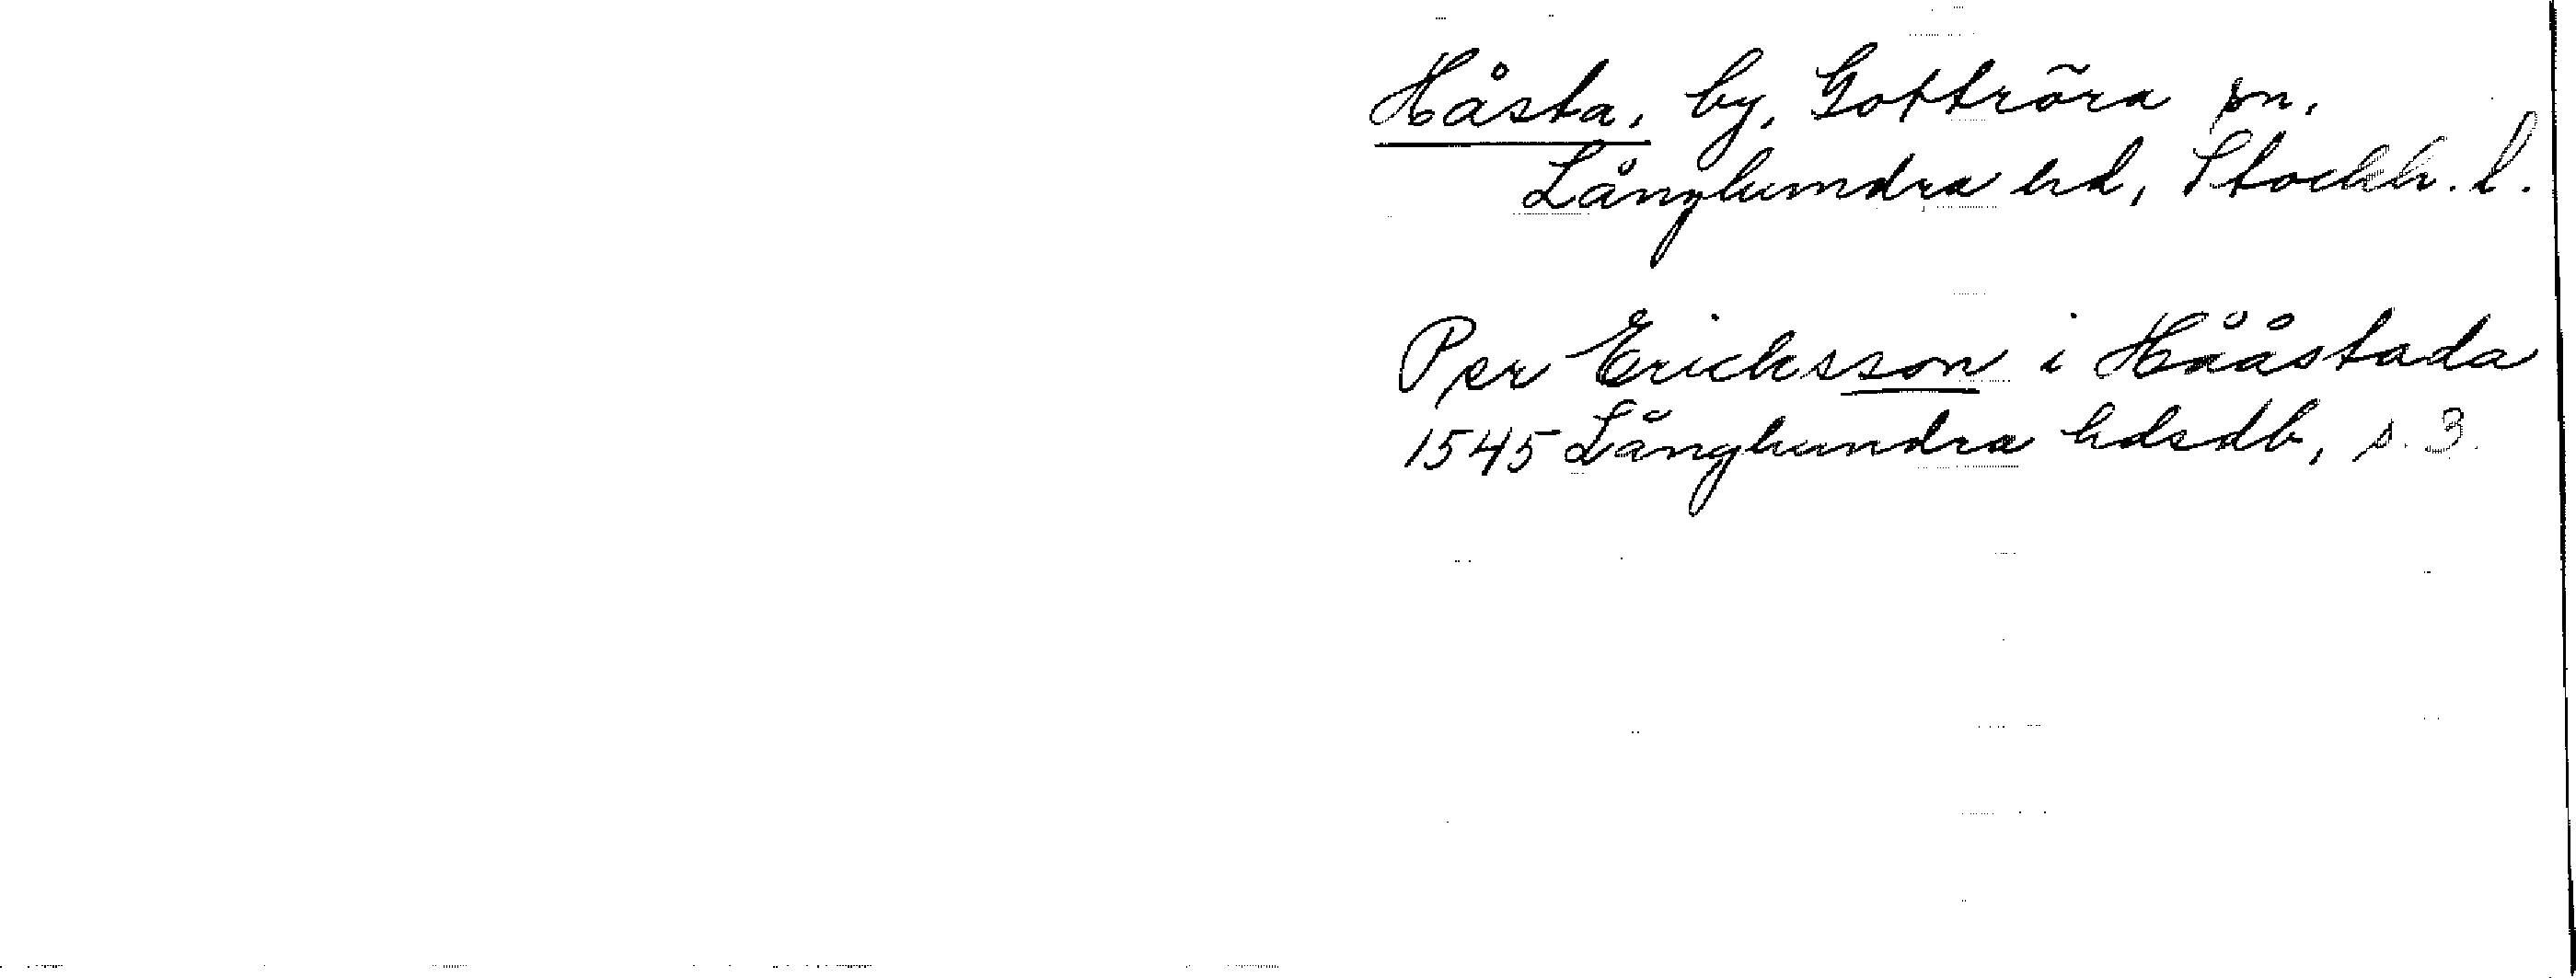 Håsta, by, Gottröra sn,
Långhundra hd, Stockh. l.
Per Ericksson i Hååstada
1545 Långhundra hdsdb, s. 3.